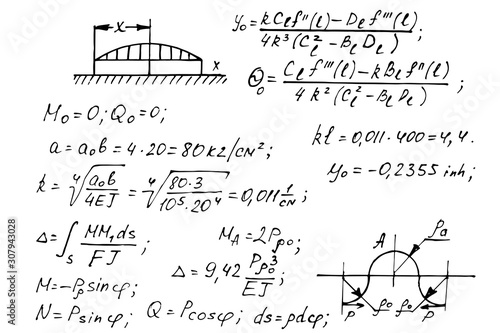 x
x
y₀ = (kCₗf''(l) − Dₗf'''(l)) / (4k³(Cₗ² − BₗDₗ));
Q₀ = (Cₗf'''(l) − kBₗf''(l)) / (4k²(Cₗ² − BₗDₗ));
M₀ = 0; Q₀ = 0;
a = a₀b = 4·20 = 80 кг/см²;
kl = 0,011·400 = 4,4.
k = ⁴√(a₀b / 4EJ) = ⁴√(80·3 / 10⁵·20⁴) = 0,011 1/см;
y₀ = −0,2355 inh;
Δ = ∫ₛ MM₁ds / FJ;
M_A = 2Pρ₀;
Δ = 9,42 Pρ₀³ / EJ;
M = −Pρ sin φ;
N = P sin φ; Q = P cos φ; ds = ρdφ;
A
ρa
P ρ₀ ρ₀ P
AdobeStock | #307943028